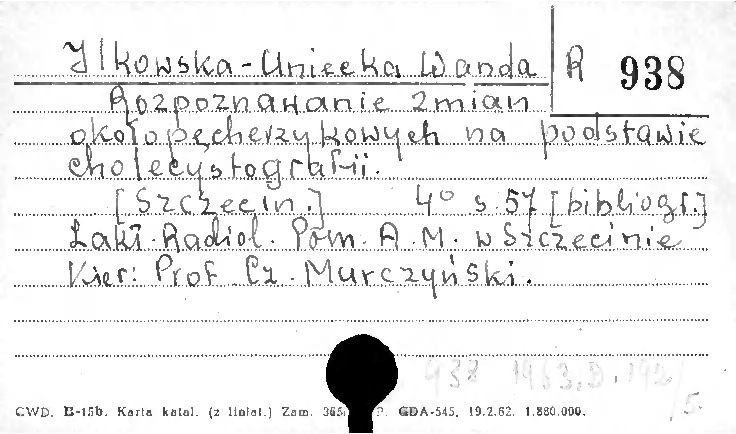 Ilkowska-Uniecka Wanda R 938
Rozpoznawanie zmian
okołopęcherzykowych na podstawie
cholecystografii.
[Szczecin.] 4° s. 57 [bibliogr.]
Zakł. Radiol. Pom. A. M. w Szczecinie
Kier: Prof Cz. Murczyński.
938 1963.D.192/5.
CWD. B-15b. Karta katal. (z liniat.) Zam. GDA-545. 19.2.62. 1.880.000.